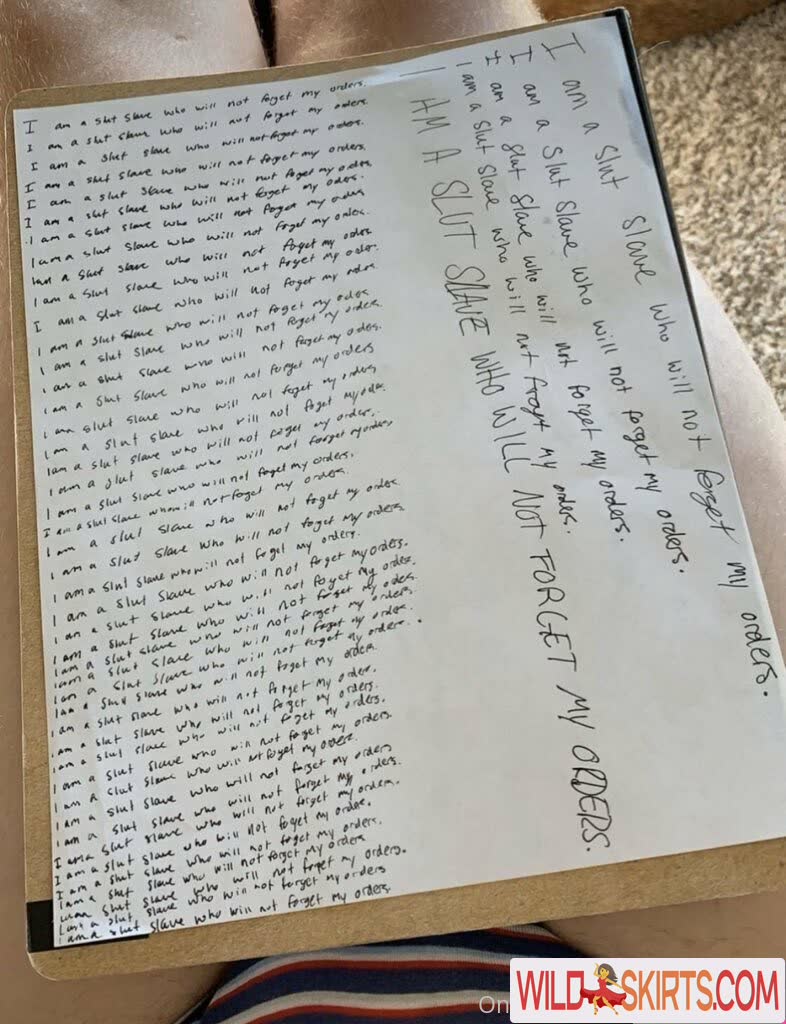 I am a slut slave who will not forget my orders.
I am a slut slave who will not forget my orders.
I am a slut slave who will not forget my orders.
I am a slut slave who will not forget my orders.
I am a slut slave who will not forget my orders.
I am a slut slave who will not forget my orders.
I am a slut slave who will not forget my orders.
I am a slut slave who will not forget my orders.
I am a slut slave who will not forget my orders.
I am a slut slave who will not forget my orders.
I am a slut slave who will not forget my orders.
I am a slut slave who will not forget my orders
I am a slut slave who will not forget my orders.
I am a slut slave who will not forget my orders.
I am a slut slave who will not forget my orders
I am slut slave who will not forget my orders
I am a slut slave who will not forget my orders.
I am a slut slave who will not forget my orders.
I am a slut slave who will not forget my orders.
I am a slut slave who will not forget my orders.
I am a slut slave who will not forget my orders.
I am a slut slave who will not forget my orders.
I am a slut slave who will not forget my orders.
I am a slut slave who will not forget my orders.
I am a slut slave who will not forget my orders.
I am a slut slave who will not forget my orders.
I am a slut slave who will not forget my orders.
I am a slut slave who will not forget my orders.
I am a slut slave who will not forget my orders.
I am a slut slave who will not forget my orders.
I am a slut slave who will not forget my orders.
I am a slut slave who will not forget my orders.
I am a slut slave who will not forget my orders.
I am a slut slave who will not forget my orders.
I am a slut slave who will not forget my orders.
I am a slut slave who will not forget my orders.
I am a slut slave who will not forget my orders.
I am a slut slave who will not forget my orders
I am a slut slave who will not forget my orders.
I am a slut slave who will not forget my orders.
I am a slut slave who will not forget my orders.
I am a slut slave who will not forget my orders.
I am a slut slave who will not forget my orders
I am a slut slave who will not forget my orders.
I am a slut slave who will not forget my orders
I am a slut slave who will not forget my orders.
I am a slut slave who will not forget my orders.
I am a slut slave who will not forget my orders.
I am a slut slave who will not forget my orders.
I am a slut slave who will not forget my orders.
I am a slut slave who will not forget my orders.
I AM A SLUT SLAVE WHO WILL NOT FORGET MY ORDERS.
On
WILDSKIRTS.COM